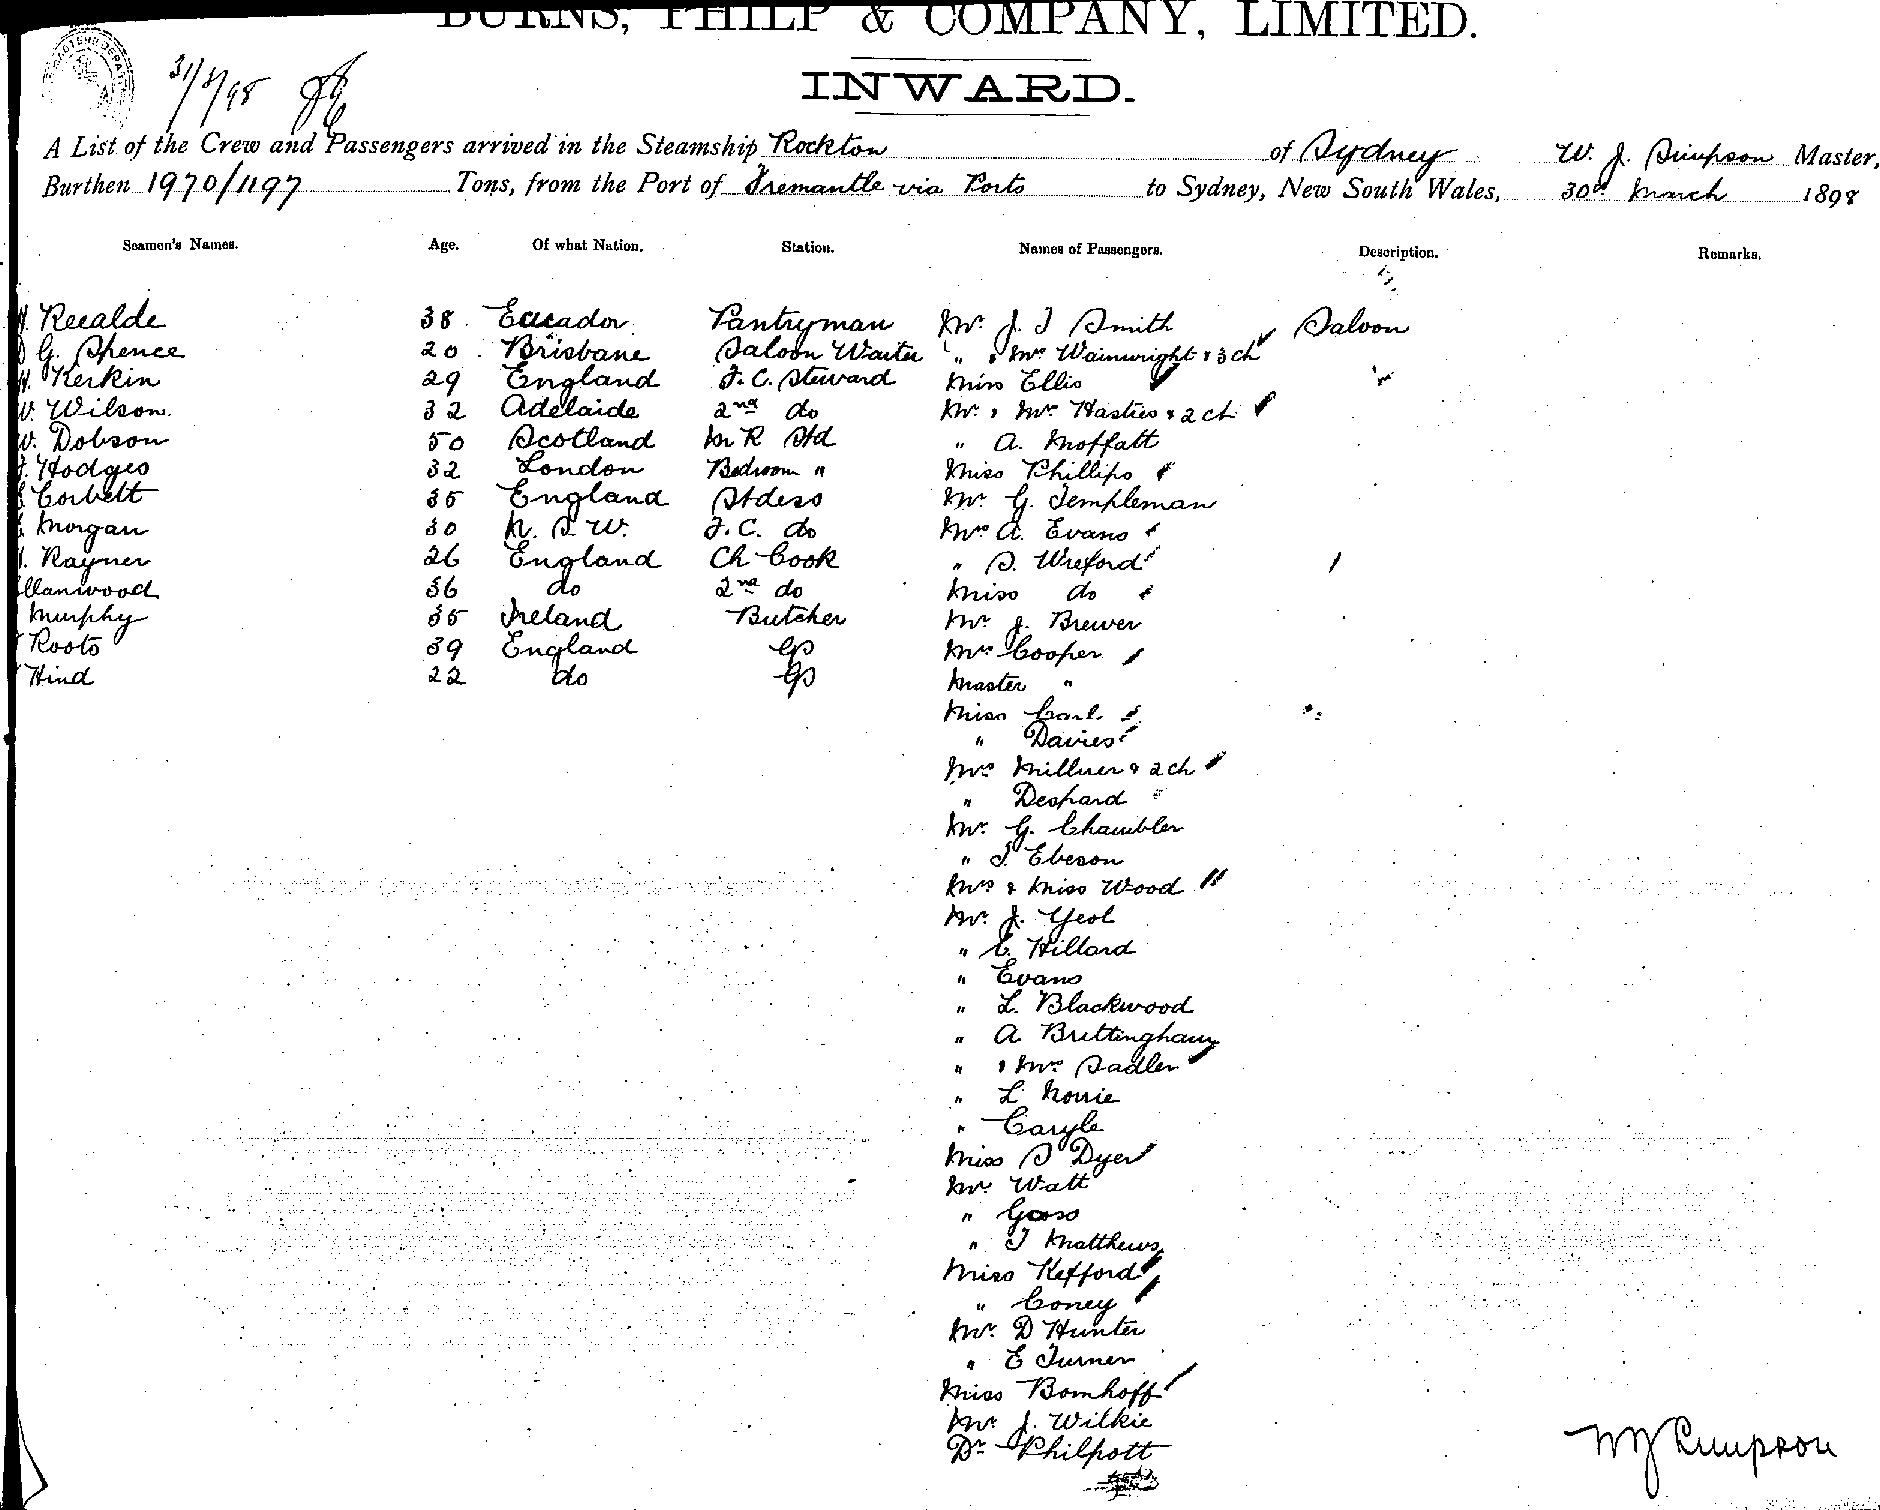 BURNS, PHILP & COMPANY, LIMITED.
INWARD.
31/3/98
A List of the Crew and Passengers arrived in the Steamship Rockton of Sydney W. J. Simpson Master,
Burthen 1970/1197 Tons, from the Port of Fremantle via Ports to Sydney, New South Wales, 30th March 1898
Seamen's Names. Age. Of what Nation. Station. Names of Passengers. Description. Remarks.
Recalde 38 Ecuador Pantryman Mr. J. T Smith Saloon
G. Spence 20 Brisbane Saloon Waiter " & Mrs Wainwright & 3 ch
Kerkin 29 England F. C. Steward Miss Ellis
W. Wilson 32 Adelaide 2nd do Mr. & Mrs Hasties & 2 ch
W. Dobson 50 Scotland M R Std " A. Moffatt
Hodges 32 London Bedroom " Miss Phillips
Corbett 35 England Stdess Mr. G. Templeman
Morgan 30 N. S. W. F. C. do Mrs A. Evans
Rayner 26 England Ch Cook " S. Wreford
36 do 2nd do Miss do
Murphy 35 Ireland Butcher Mr J. Brewer
Roots 39 England GS Mrs Cooper
Hind 22 do GS Master "
Miss Carl
" Davies
Mrs Millner & 2 ch
" Despard
Mr. G. Chambler
" S. Ebeson
Mrs & Miss Wood
Mr. J. Yeol
" C. Hillard
" Evans
" L. Blackwood
" A. Brittingham
" & Mrs Sadler
" L. Norrie
" Caryle
Miss S Dyer
Mr Watt
" Goss
" T Matthews
Miss Kefford
" Coney
Mr. D Hunter
" E Turner
Miss Bomhoff
Mr J. Wilkie
Dr Philpott
W J Simpson